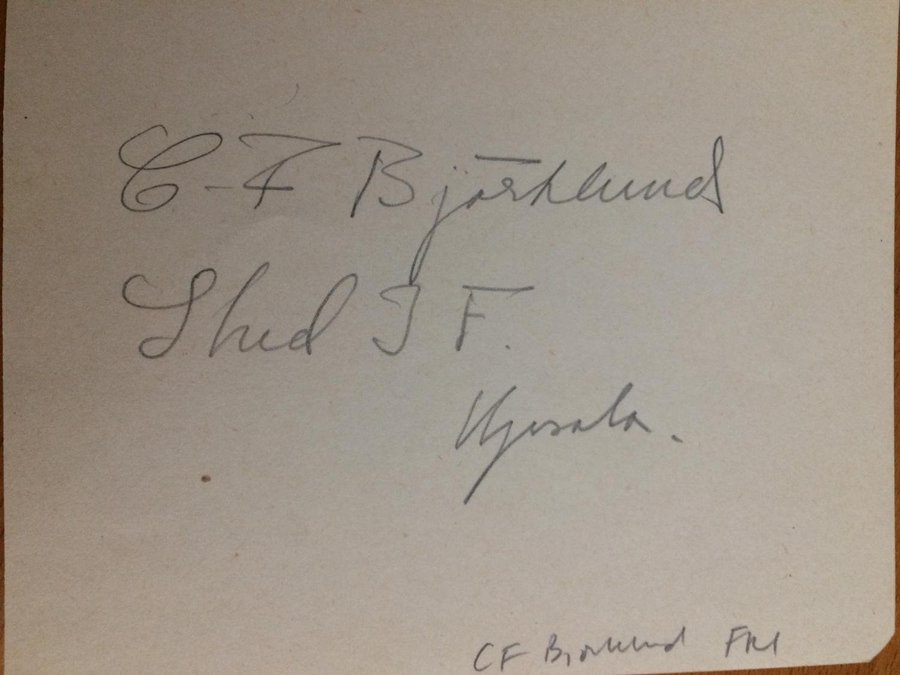 C-F Björklund
Stud I F.
Upsala.
CF Bjorklund